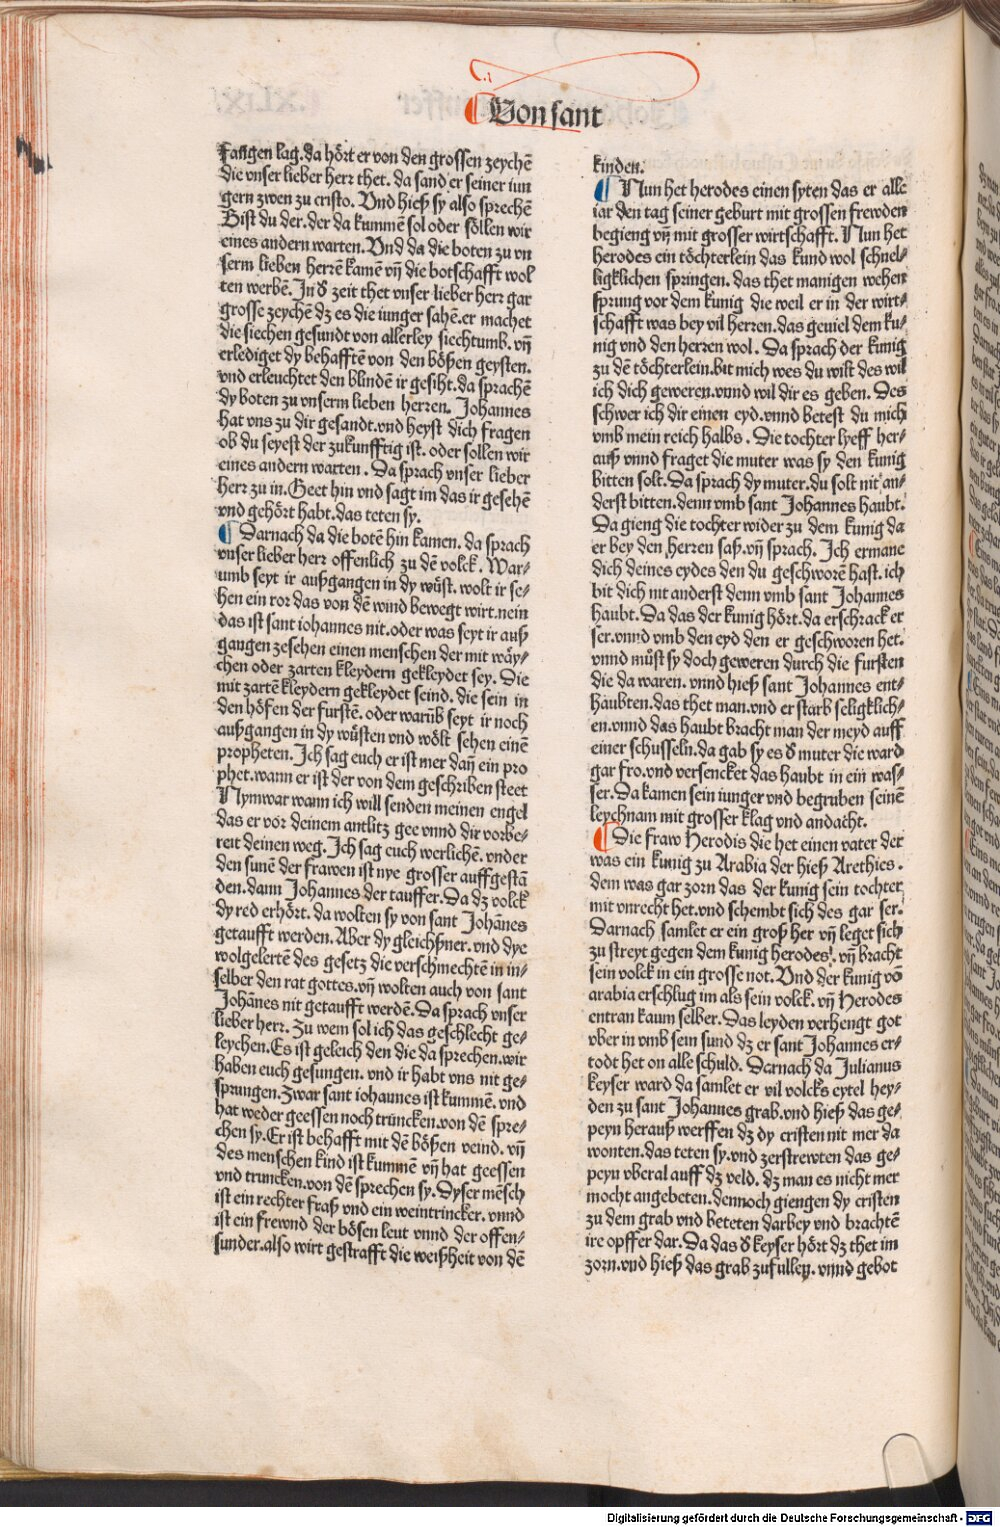 Von sant
fangen lag. da hört er von den grossen zeychē
die vnser lieber herr thet. da sand er seiner iun
gern zwen zu cristo. Vnd hieß sy also sprechē
Bist du der. der da kummē sol oder söllen wir
eines andern warten. Vnd da die boten zu vn
serm lieben herrē kamē vñ die botschafft wol
ten werbē. In d̕ zeit thet vnser lieber herr gar
grosse zeychē dz es die iunger sahē. er machet
die siechen gesundt von allerley siechtumb. vñ
erlediget dy behafftē von den bößen geysten.
vnd erleuchtet den blindē ir gesiht. da sprachē
dy boten zu vnserm lieben herren. Johannes
hat vns zu dir gesandt. vnd heyst dich fragen
ob du seyest der zukunfftig ist. oder sollen wir
eines andern warten. Da sprach vnser lieber
herr zu in. Geet hin vnd sagt im das ir gesehē
vnd gehört habt. das teten sy.
Darnach da die botē hin kamen. da sprach
vnser lieber herr offenlich zu dē volck. War⸗
umb seyt ir außgangen in dy wüst. wolt ir se⸗
hen ein ror das von dē wind bewegt wirt. nein
das ist sant iohannes nit. oder was seyt ir auß
gangen zesehen einen menschen der mit wäy⸗
chen oder zarten kleydern gekleydet sey. Die
mit zartē kleydern gekleydet seind. die sein in
den höfen der furstē. oder warūb seyt ir noch
außgangen in dy wüsten vnd wölt sehen einē
propheten. Ich sag euch er ist mer dañ ein pro
phet. wann er ist der von dem geschriben steet
Nymwar wann ich will senden meinen engel
das er vor deinem antlitz gee vnnd dir vorbe⸗
reit deinen weg. Ich sag euch werlichē. vnder
den sunē der frawen ist nye grosser auffgestā
den. dann Johannes der tauffer. Da dz volck
dy red erhört. da wolten sy von sant Johānes
getaufft werden. Aber dy gleichßner. vnd dye
wolgelertē des gesetz die verschmechtē in in⸗
selber den rat gottes. vñ wolten auch von sant
Johānes nit getaufft werdē. Da sprach vnser
lieber herr. Zu wem sol ich das geschlecht ge⸗
leychen. Es ist geleich den die da sprechen. wir
haben euch gesungen. vnd ir habt vns nit ge⸗
sprungen. Zwar sant iohannes ist kummē. vnd
hat weder geessen noch truncken. von dē spre⸗
chen sy. Er ist behafft mit dē bößen veind. vñ
des menschen kind ist kummē vñ hat geessen
vnd truncken. von dē sprechen sy. Dyser mēsch
ist ein rechter fraß vnd ein weintrincker. vnnd
ist ein frewnd der bösen leut vnnd der offen⸗
sunder. also wirt gestrafft die weißheit von dē
kinden.
Nun het herodes einen syten das er alle
iar den tag seiner geburt mit grossen frewden
begieng vñ mit grosser wirtschafft. Nun het
herodes ein töchterlein das kund wol schnel⸗
ligklichen springen. das thet manigen wehen
sprung vor dem kunig die weil er in der wirt⸗
schafft was bey vil herren. das geuiel dem ku⸗
nig vnd den herren wol. Da sprach der kunig
zu dē töchterlein. bit mich wes du wilt des wil
ich dich geweren. vnnd wil dir es geben. Des
schwer ich dir einen eyd. vnnd betest du mich
vmb mein reich halbs. Die tochter lyeff her⸗
auß vnnd fraget die muter was sy den kunig
bitten solt. Da sprach dy muter. du solt nit an⸗
derst bitten. denn vmb sant Johannes haubt.
Da gieng die tochter wider zu dem kunig da
er bey den herren saß. vñ sprach. Ich ermane
dich deines eydes den du geschworē hast. ich
bit dich nit anderst denn vmb sant Johannes
haubt. Da das der kunig hört. da erschrack er
ser. vnnd vmb den eyd den er geschworen het.
vnnd müst sy doch geweren durch die fursten
die da waren. vnnd hieß sant Johannes ent⸗
haubten. das thet man. vnd er starb seligklich⸗
en. vnnd das haubt bracht man der meyd auff
einer schusseln. da gab sy es d̕ muter die ward
gar fro. vnd versencket das haubt in ein was⸗
ser. Da kamen sein iunger vnd begruben seinē
leychnam mit grosser klag vnd andacht.
Die fraw Herodis die het einen vater der
was ein kunig zu Arabia der hieß Arethies.
dem was gar zorn das der kunig sein tochter
mit vnrecht het. vnd schembt sich des gar ser.
Darnach samlet er ein groß her vñ leget sich
zu streyt gegen dem kunig herodes. vñ bracht
sein volck in ein grosse not. Vnd der kunig vō
arabia erschlug im als sein volck. vñ Herodes
entran kaum selber. Das leyden verhengt got
vber in vmb sein sund dz er sant Johannes er⸗
todt het on alle schuld. Darnach da Julianus
keyser ward da samlet er vil volcks eytel hey⸗
den zu sant Johannes grab. vnd hieß das ge⸗
peyn herauß werffen dz dy cristen nit mer da
wonten. das teten sy. vnd zerstrewten das ge⸗
peyn vberal auff dz veld. dz man es nicht mer
mocht angebeten. dennoch giengen dy cristen
zu dem grab vnd beteten darbey vnd brachtē
ire opffer dar. Da das d̕ keyser hört dz thet im
zorn. vnd hieß das grab zufullen. vnnd gebot
Digitalisierung gefördert durch die Deutsche Forschungsgemeinschaft - DFG